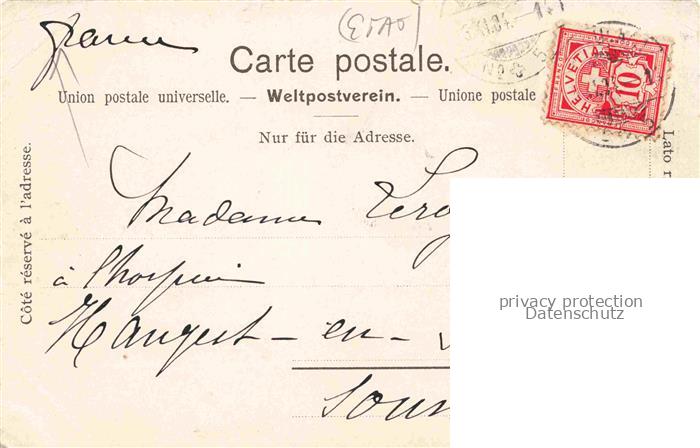 France
Carte postale.
Union postale universelle. — Weltpostverein. — Unione postale
Nur für die Adresse.
Côté réservé à l'adresse.
Lato r
HELVETIA
10
Madame Lero
à l'hospice
Hangest-en-
Som
privacy protection
Datenschutz